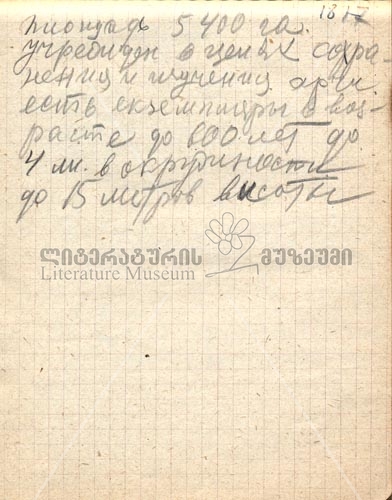 1817
площадь 5 400 га.
учрежден в целях сохра-
нения и изучения арчи.
есть екземпляры в воз-
расте до 800 лет до
4 м. в окружности
до 15 метров высоты
ლიტერატურის მუზეუმი
Literature Museum